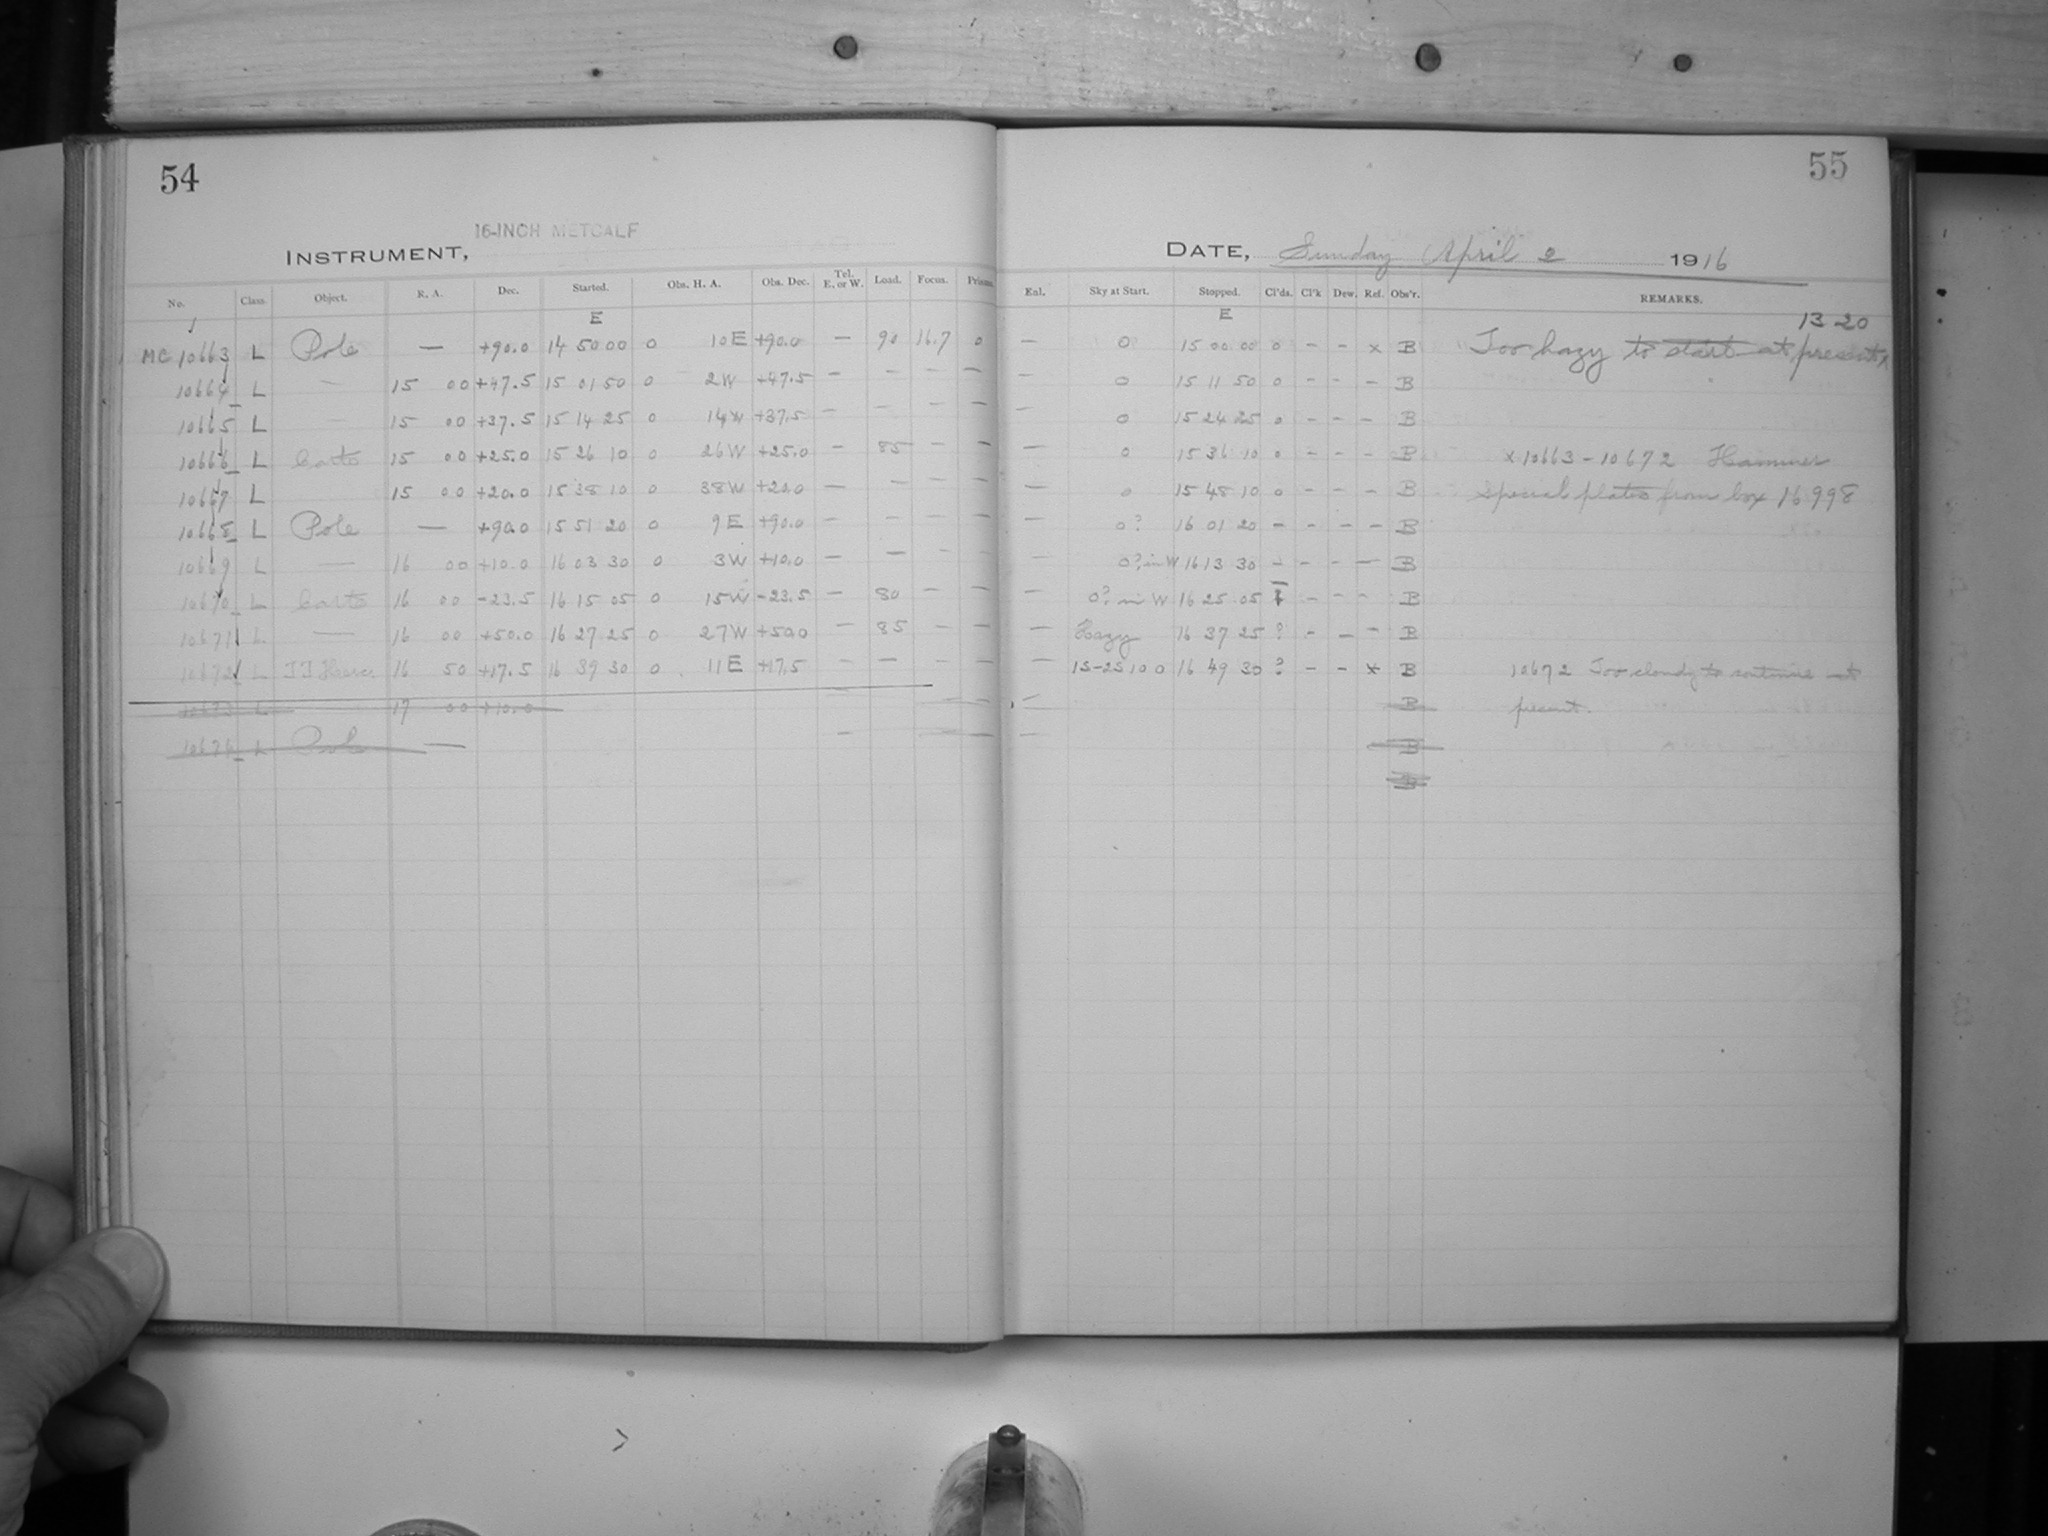 54
16-INCH METCALF
INSTRUMENT,
No. Class. Object. R. A. Dec. Started. Obs. H. A. Obs. Dec. Tel. E. or W. Load. Focus. Prism.
E
MC 10663 L Pole — +90.0 14 50 00 0 10 E +90.0 — 90 16.7 0
10664 L — 15 00 +47.5 15 01 50 0 2 W +47.5 — — — —
10665 L — 15 00 +37.5 15 14 25 0 14 W +37.5 — — — —
10666 L 15 00 +25.0 15 26 10 0 26 W +25.0 — 85 — —
10667 L 15 00 +20.0 15 38 10 0 38 W +20.0 — — — —
10668 L Pole — +90.0 15 51 20 0 9 E +90.0 — — — —
10669 L — 16 00 +10.0 16 03 30 0 3 W +10.0 — — — —
10670 L 16 00 -23.5 16 15 05 0 15 W -23.5 — 80 — —
10671 L — 16 00 +50.0 16 27 25 0 27 W +50.0 — 85 — —
10672 L 16 50 +17.5 16 39 30 0 11 E +17.5 — — — —
10673 L 17 00 +10.0
10674 L Pole —
55
DATE, Sunday April 2 1916
Enl. Sky at Start. Stopped. Cl'ds. Cl'k Dew. Ref. Obs'r. REMARKS.
E 13 20
— 0 15 00 00 0 - - x B Too hazy to start at present x
— 0 15 11 50 0 - - - B
— 0 15 24 25 0 - - - B
— 0 15 36 10 0 - - - B x 10663 - 10672 Hammer
— 0 15 48 10 0 - - - B special plates from box 16998
— 0? 16 01 20 - - - - B
— 0? in W 16 13 30 - - - - B
— 0? in W 16 25 05 - - - B
— Hazy 16 37 25 ? - - - B
— 15-25 100 16 49 30 ? - - x B 10672 Too cloudy to continue at
— B present.
— B
B